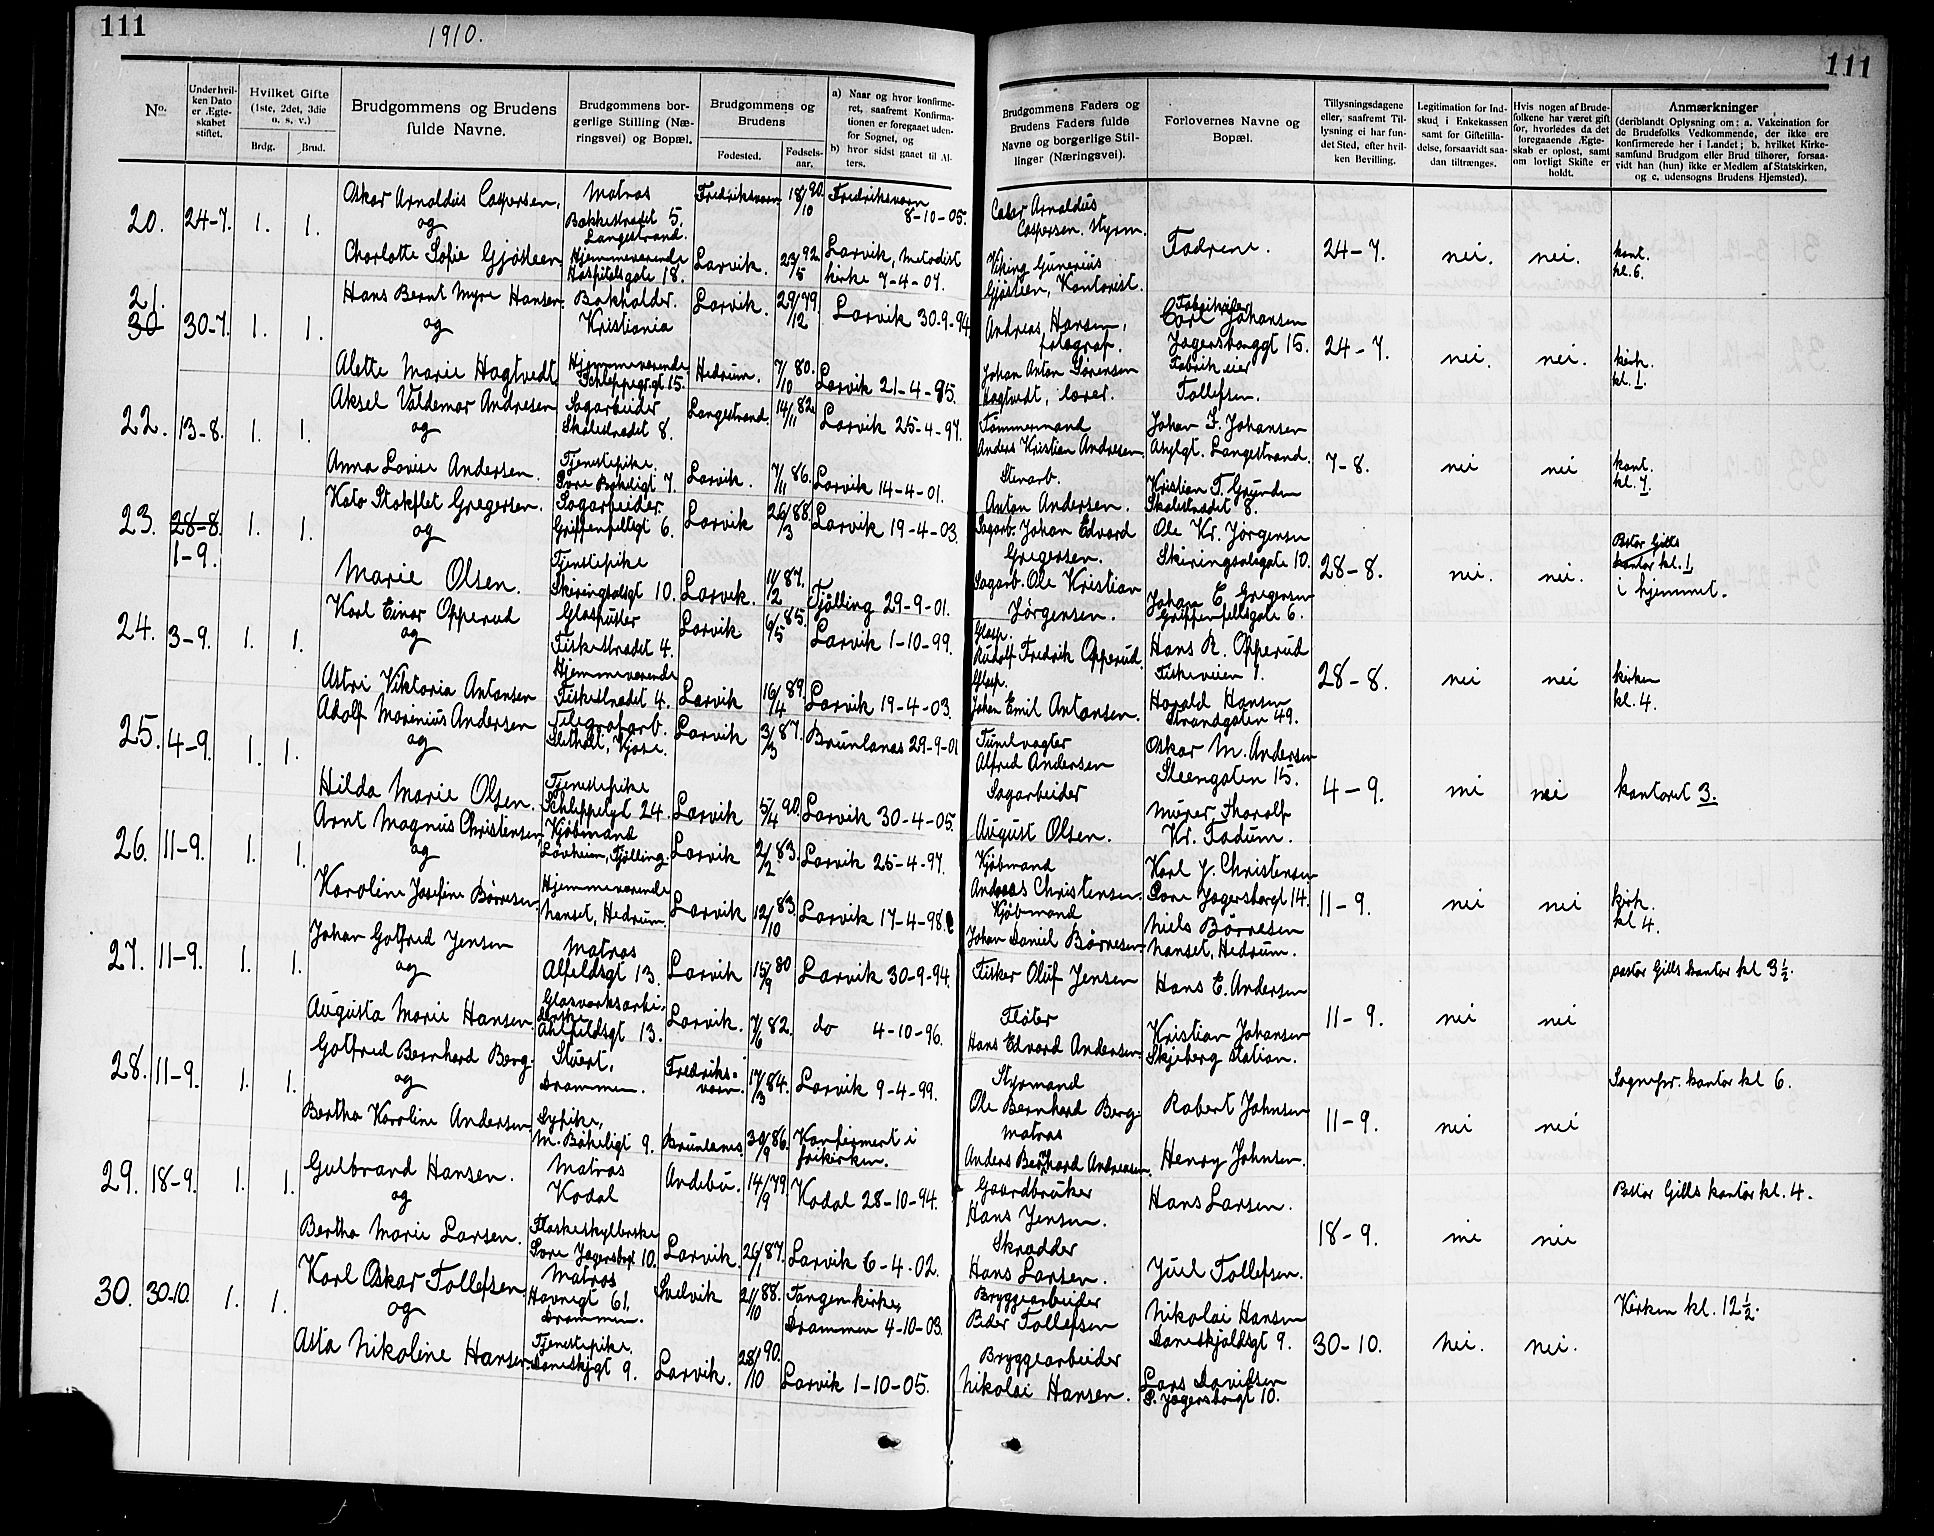 111
1910.
111
No.
Under hvilken Dato er Ægteskabet stiftet.
Hvilket Gifte (1ste, 2det, 3die o. s. v.)
Brdg.
Brud.
Brudgommens og Brudens fulde Navne.
Brudgommens borgerlige Stilling (Næringsvei) og Bopæl.
Brudgommens og Brudens
Fødested.
Fødselsaar.
a) Naar og hvor konfirmeret, saafremt Konfirmationen er foregaaet udenfor Sognet, og
b) hvor sidst gaaet til Alters.
Brudgommens Faders og Brudens Faders fulde Navne og borgerlige Stillinger (Næringsvei).
Forlovernes Navne og Bopæl.
Tillysningsdagene eller, saafremt Tillysning ei har fundet Sted, efter hvilken Bevilling.
Legitimation for Indskud i Enkekassen samt for Giftetilladelse, forsaavidt saadan tiltrænges.
Hvis nogen af Brudefolkene har været gift før, hvorledes da det foregaaende Ægteskab er opløst, samt om lovligt Skifte er holdt.
Anmærkninger
(deriblandt Oplysning om: a. Vakcination for de Brudefolks Vedkommende, der ikke ere konfirmerede her i Landet; b. hvilket Kirkesamfund Brudgom eller Brud tilhører, forsaavidt han (hun) ikke er Medlem af Statskirken, og c. udensogns Brudens Hjemsted).
20. 24-7. 1. 1. Oskar Arnoldus Caspersen, Matros Bakkestrædet 5. Langestrand. Fredriksværn 18/10 90. Fredriksværn 8-10-05. Arnoldus Caspersen. Styrm. Fædrene. 24-7. nei. nei. kont. kl. 6.
og
Charlotte Sofie Gjøsteen Hjemmeværende Hospitalsgate 18. Larvik. 23/5 92. Larvik, Metodist kirke 7-4-07. Viking Gunerius Gjøsteen, Kontorist.
21. 30 30-7. 1. 1. Hans Bernt Myre Hansen Bokholder. Kristiania Larvik. 29/12 79. Larvik 30-9-94 Andreas Hansen, fotograf. Carl Johansen Jegersborggt 15. 24-7. nei. nei. kirk. kl. 1.
og
Alette Marie Hagtvedt Hjemmeværende Schleppegrgt 15. Hedrum. 7/10 80. Larvik 21-4-95. Johan Anton Sørensen Hagtvedt, lærer. Fabrikeier Tollefsen.
22. 13-8. 1. 1. Aksel Valdemar Andresen Sagarbeider Skolestrædet 8. Langestrand. 14/11 82. Larvik 25-4-97. Tømmermand Anders Kristian Andresen Johan F. Johansen Asylgt. Langestrand. 7-8. nei nei kont. kl. 7.
og
Anna Lovise Andersen. Tjenestepike. Søre Bøkeligt 7. Larvik. 7/11 86. Larvik 14-4-01. Stenarb. Anton Andersen. Kristian T. Grunden Skolestrædet 8.
23. 28-8. 1-9. 1. 1. Kato Stokflet Gregersen. Sagarbeider Griffenfeltsgt 6. Larvik 26/3 88. Larvik 19-4-03. Sagarb. Johan Edvard Gregersen. Ole Kr. Jørgensen Skiringssalsgate 10. 28-8. nei. nei. Pastor Gills kontor kl. 1 i hjemmet.
og
Marie Olsen. Tjenestepike Skiringsalsgt 10. Larvik. 11/2 87. Tjølling 29-9-01. Sagarb. Ole Kristian Jørgensen. Johan E. Gregersen Griffenfeltsgate 6.
24. 3-9. 1. 1. Karl Einar Opperud Glaspuster Fiskestrædet 4. Larvik 6/5 85. Larvik 1-10-99. Glasp. Rudolf Fredrik Opperud. Hans R. Opperud Fiskeveien 1. 28-8. nei nei kirken kl. 4.
og
Astri Viktoria Antonsen Hjemmeværende Fiskestrædet 4. Larvik 16/4 89. Larvik 19-4-03. Glasp. Johan Emil Antonsen. Harald Hansen Strandgaten 49.
25. 4-9. 1. 1. Adolf Marinius Andersen Telegrafarb. Kjose. Larvik 3/3 87. Brunlanæs 29-9-01 Tunelvagter Alfred Andersen Oskar M. Andersen Steengaten 15. 4-9. nei nei kontoret 3.
og
Hilda Marie Olsen. Tjenestepike Schleppelgt 24. Larvik 5/4 90. Larvik 30-4-05. Sagarbeider August Olsen. Murer Thoralf Kr. Fadum.
26. 11-9. 1. 1. Arnt Magnus Christensen, Kjøbmand Løvheim, Tjølling. Larvik 2/2 83. Larvik 25-4-97. Kjøbmand Andreas Christensen. Karl J. Christensen Søre Jegersborgt 14. 11-9. nei nei kirk. kl 4.
og
Karoline Josefine Børresen. Hjemmeværende Nanset, Hedrum. Larvik 12/10 83. Larvik 17-4-98. Kjøbmand Johan Daniel Børresen. Niels Børresen Nanset, Hedrum.
27. 11-9. 1. 1. Johan Gotfred Jensen Matros Alfeldsgt 13. Larvik 15/9 80 Larvik 30-9-94. Fisker Oluf Jensen Hans E. Andersen 11-9. nei nei pastor Gills kontor kl 3 1/2.
og
Augusta Marie Hansen Glasværksarbeiderske Ahlfeldsgt 13. Larvik. 7/6 82. do 4-10-96. Fløter Hans Edvard Andersen. Kristian Johansen Skjeberg station.
28. 11-9. 1. 1. Gotfred Bernhard Berg. Stuert, Drammen. Fredriksværn. 17/3 84. Larvik 9-4-99. Styrmand Ole Bernhard Berg. Robert Johnsen 11-9. nei nei Sognepr. kontor kl 6.
og
Bertha Karoline Andersen Sypike, M. Bøkeligt 9. Brunlanes 30/9 86. Konfirmert i frikirken. Matros Anders Bernhard Andreasen. Henry Johnsen.
29. 18-9. 1. 1. Gulbrand Hansen. Matros Kodal Andebu. 14/9 79. Kodal 28-10-94. Gaardbruker Hans Jensen. Hans Larsen. 18-9. nei nei Pastor Gills kontor kl. 4.
og
Bertha Marie Larsen. Flaskeskyllerske Søre Jegersbgt 10. Larvik. 26/1 87. Larvik 6-4-02. Skrædder Hans Larsen. Juul Tollefsen.
30. 30-10. 1. 1. Karl Oskar Tollefsen Matros Havnegt 61. Drammen. Svelvik 21/10 88. Tangen kirke, Drammen 4-10-03. Bryggearbeider Peder Tollefsen Nikolai Hansen Daneskjoldsgt 9. 30-10. nei. nei. Kirken kl. 12 1/2.
og
Asta Nikoline Hansen Tjenestepike. Daneskjgt 9. Larvik. 28/10 90. Larvik 1-10-05. Bryggearbeider Nikolai Hansen. Lars Davidsen S. Jegersborgt 10.